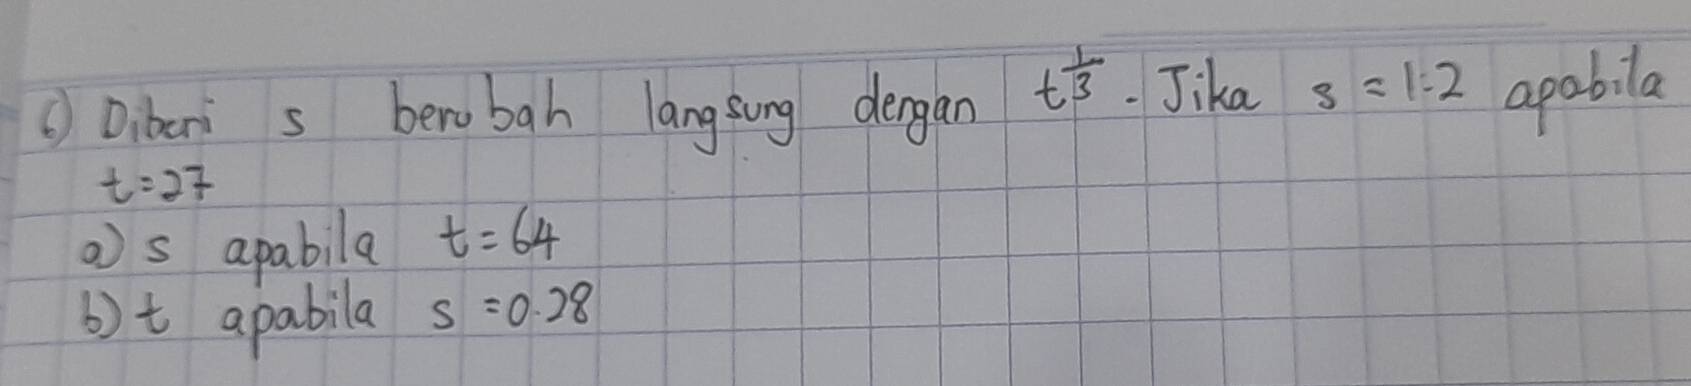 6) Diberi s berubah langsung dengan t^1/3. Jika s = 1.2 apabila
t=27
a) s apabila t = 64
b) t apabila s = 0.28